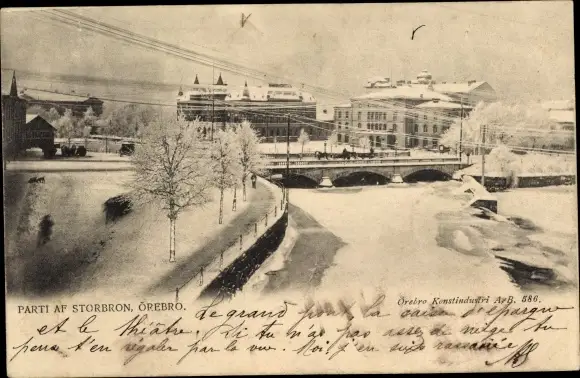 PARTI AF STORBRON, ÖREBRO.
Örebro Konstindustri A-B. 586.
le grand pont la caisse d'épargne
et le théâtre. Si tu n'as pas assez de neige tu
peux t'en régaler par la vue. Moi j'en suis rassasiée